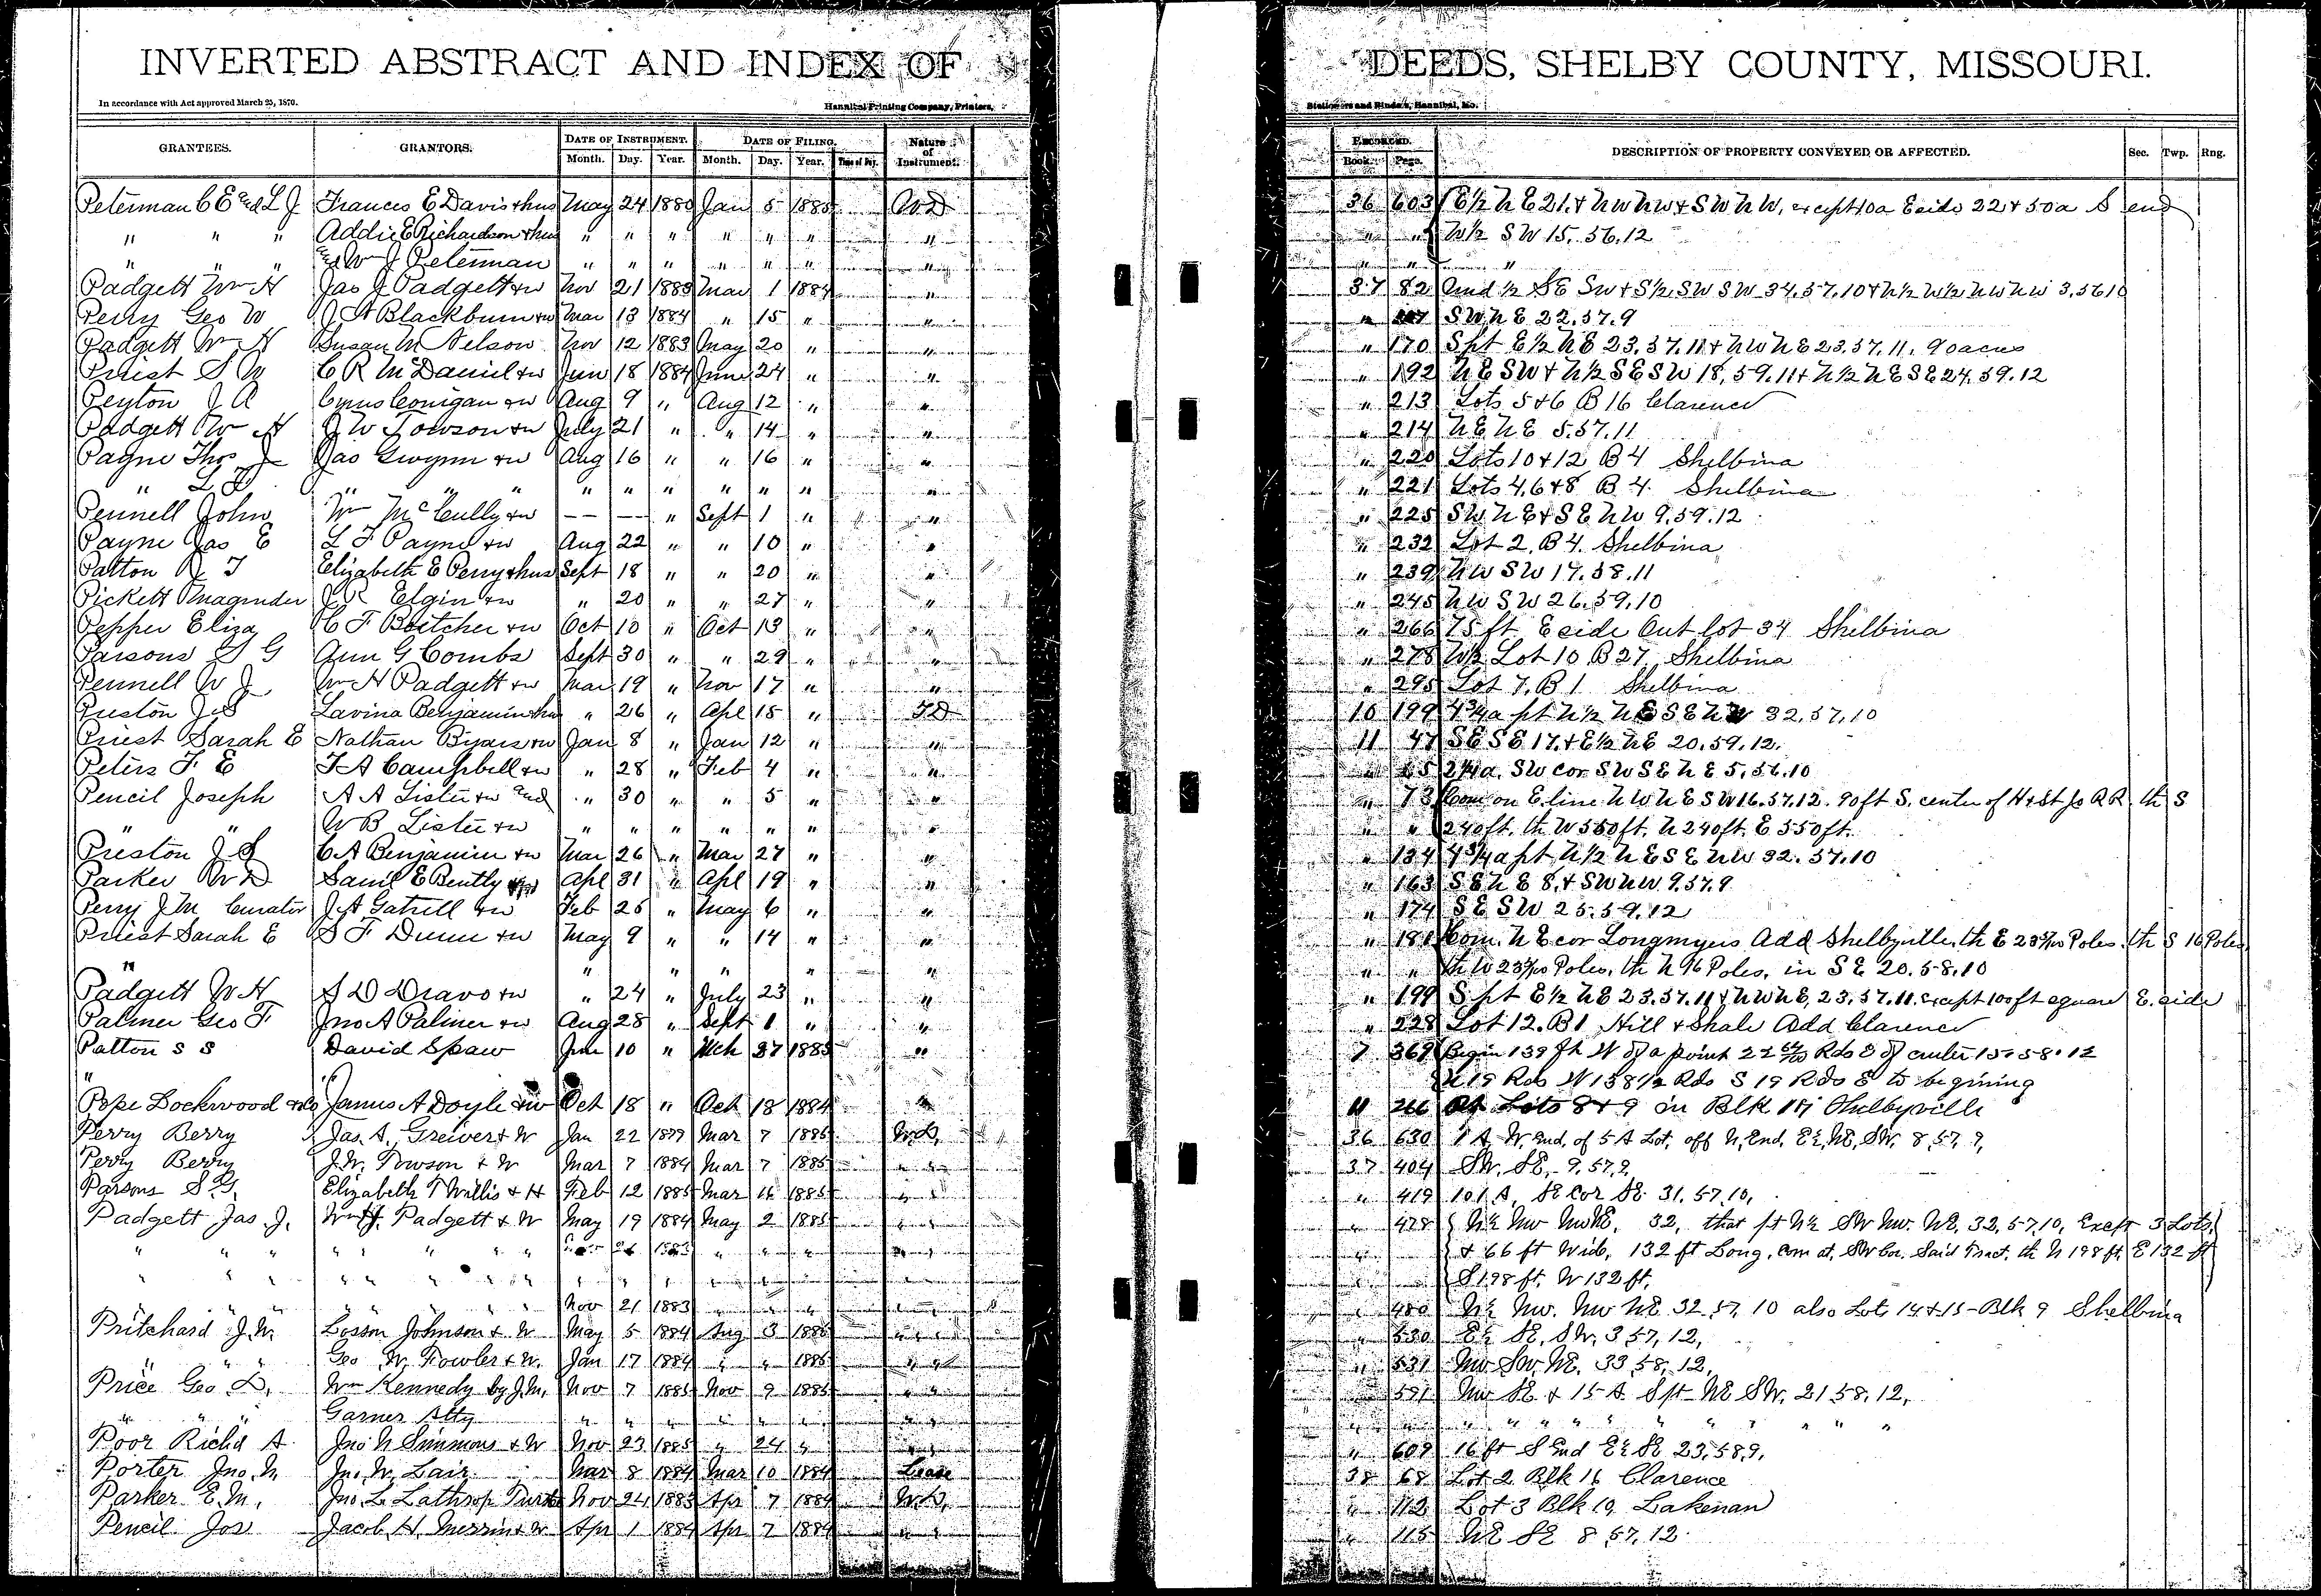 INVERTED ABSTRACT AND INDEX OF DEEDS, SHELBY COUNTY, MISSOURI.
In accordance with Act approved March 25, 1870. Hannibal Printing Company, Printers, Stationers and Binders, Hannibal, Mo.
GRANTEES. GRANTORS. DATE OF INSTRUMENT. DATE OF FILING. Nature of Instrument. RECORDED. DESCRIPTION OF PROPERTY CONVEYED OR AFFECTED. Sec. Twp. Rng.
Month. Day. Year. Month. Day. Year. Book. Page.
Peterman C E and L J Frances E Davis & hus May 24 1880 Jan 5 1885 WD 36 603 E½ N E 21. & NW NW & SW NW, except 10a E side 22 & 50a S end
" " " Addie E Richardson & hus " " " " " " " " " W½ SW 15.56.12
" " " and Wm J Peterman " " " " " " " " " "
Padgett Wm H Jas J Padgett & w Nov 21 1883 Mar 1 1884 " 37 82 Und ½ SE SW & S½ SW SW 34.57.10 & N½ W½ NW NW 3.56 10
Perry Geo W J A Blackburn & w Mar 13 1884 " 15 " " " SW NE 22.57.9
Padgett Wm H Susan M Nelson Nov 12 1883 May 20 " " " 170 S pt E½ NE 23.57.11 & NW NE 23.57.11. 90 acres
Priest S W C R McDaniel & w Jun 18 1884 June 24 " " " 192 NE SW & N½ SE SW 18.59.11 & N½ NE SE 24.59.12
Peyton J A Cyrus Conigan & w Aug 9 " Aug 12 " " " 213 Lots 5 & 6 B 16 Clarence
Padgett Wm H J W Towson & w July 21 " " 14 " " " 214 NE NE 5.57.11
Payne Thos J Jas Gwynn & w Aug 16 " " 16 " " " 220 Lots 10 & 12 B 4 Shelbina
" L F " " " " " " " " " " " 221 Lots 4, 6 & 8 B 4. Shelbina
Pennell John Wm McCully & w — — " Sept 1 " " " 225 SW NE & SE NW 9.59.12
Payne Jas E L F Payne & w Aug 22 " " 10 " " " 232 Lot 2. B 4. Shelbina
Patton R T Elizabeth E Perry & hus Sept 18 " " 20 " " " 239 NW SW 17.58.11
Pickett Magruder J R Elgin & w " 20 " " 27 " " " 245 NW SW 26.59.10
Pepper Eliza C F Boettcher & w Oct 10 " Oct 13 " " " 266 75 ft E side Out lot 34 Shelbina
Parsons S G Ann G Combs Sept 30 " " 29 " " " 278 W½ Lot 10 B 27, Shelbina
Pennell W J Wm H Padgett & w Mar 19 " Nov 17 " " " 295 Lot 7. B 1 Shelbina
Preston J S Lavina Benjamin & hus " 26 " Apl 15 " TD 10 199 4¾a pt N½ NE SE NW 32.57.10
Priest Sarah E Nathan Byars & w Jan 8 " Jan 12 " " 11 47 SE SE 17. & E½ NE 20.59.12.
Peters F E F A Campbell & w " 28 " Feb 4 " " " 65 2¼a. SW cor SW SE NE 5.56.10
Pencil Joseph A A Lister & w and " 30 " " 5 " " " 73 Com on E line NW NE SW 16.57.12. 90 ft S. center of H & St Jo RR. th S
" W B Lister & w " " " " " " " " " 240 ft. th W 550 ft. N 240 ft. E 550 ft.
Preston J S C A Benjamin & w Mar 26 " Mar 27 " " " 134 4¾a pt N½ NE SE NW 32.57.10
Parker W D Saml E Bently Apl 31 " Apl 19 " " " 163 SE NE 8. & SW NW 9.57.9
Perry J M Curator J A Gatrell & w Feb 25 " May 6 " " " 174 SE SW 25.59.12
Priest Sarah E S F Dunn & w May 9 " " 14 " " " 181 Com. NE cor Longmyers Add Shelbyville, th E Poles. th S 16 Poles
" " " " " " " " " th W Poles, th N 16 Poles, in SE 20.58.10
Padgett W H S D Dravo & w " 24 " July 23 " " " 199 S pt E½ NE 23.57.11 & NW NE, 23.57.11. except 100 ft square E. side
Palmer Geo F Jno A Palmer & w Aug 28 " Sept 1 " " " 228 Lot 12. B 1 Hill & Shale Add Clarence
Patton S S David Spaw Jun 10 " Mch 27 1885 " 7 369 Begin 139 ft N of a point 22 Rds E of center 15.58.12
" N 19 Rds W 158½ Rds S 19 Rds E to begining
Pope Lockwood & Co James A Doyle & w Oct 18 " Oct 18 1884 " 11 266 Lots 8 & 9 in Blk Shelbyville
Perry Berry Jas. A. Greiver & W Jan 22 1877 Mar 7 1885 W.D. 36 630 1 A. W. End. of 5 A Lot. off N. End. E½, NE, SW. 8, 57, 9,
Perry Berry J. W. Towson & W Mar 7 1884 Mar 7 1885 " 37 404 SW. SE. 9.57.9.
Parsons S. G. Elizabeth T Willis & H Feb 12 1885 Mar 16 1885 " " 419 101 A. SE Cor SE. 31. 57.10,
Padgett Jas. J. Wm H. Padgett & W May 19 1884 May 2 1885 " " 478 N½ NW NWNE. 32, that pt N½ SW NW. NE. 32, 57, 10, Except 3 Lots,
" " " " " " 1883 " " " " " & 66 ft Wide, 132 ft Long, com at. SW Cor. Said Tract. th N 198 ft. E 132 ft
" " " " " " " " " " " " " S 198 ft. W 132 ft.
" " " " " Nov 21 1883 " " " " " 480 N½ NW. NW NE 32, 57, 10 also Lots 14 & 15 - Blk 9 Shelbina
Pritchard J. W. Losson Johnson & W May 5 1884 Aug 3 1885 " " 530 E½ SE. SW. 3 57, 12,
" " " Geo. W. Fowler & W. Jan 17 1884 " " 1885 " " 531 NW SW. NE. 33 58, 12,
Price Geo D. Wm Kennedy by J. M. Nov 7 1885 Nov 9 1885 " " 591 NW SE & 15 A S pt NE SW, 21 58, 12,
" " " Garner Atty " " " " " " " " " " " " " " "
Poor Richd A. Jno N Simmons & W Nov 23 1885 " 24 " " " 609 16 ft S End E½ SE 23, 58 9,
Porter Jno. N. Jn. W. Lair Mar 8 1884 Mar 10 1884 Lease 38 68 Lot 2 Blk 16 Clarence
Parker E. M. Jno. L. Lathrop Nov 24 1883 Apr 7 1884 W.D. " 112 Lot 3 Blk 19 Lakenan
Pencil Jos Jacob H. Merrin & W Apr 1 1884 Apr 7 1884 " " 115 NE SE 8 57, 12.